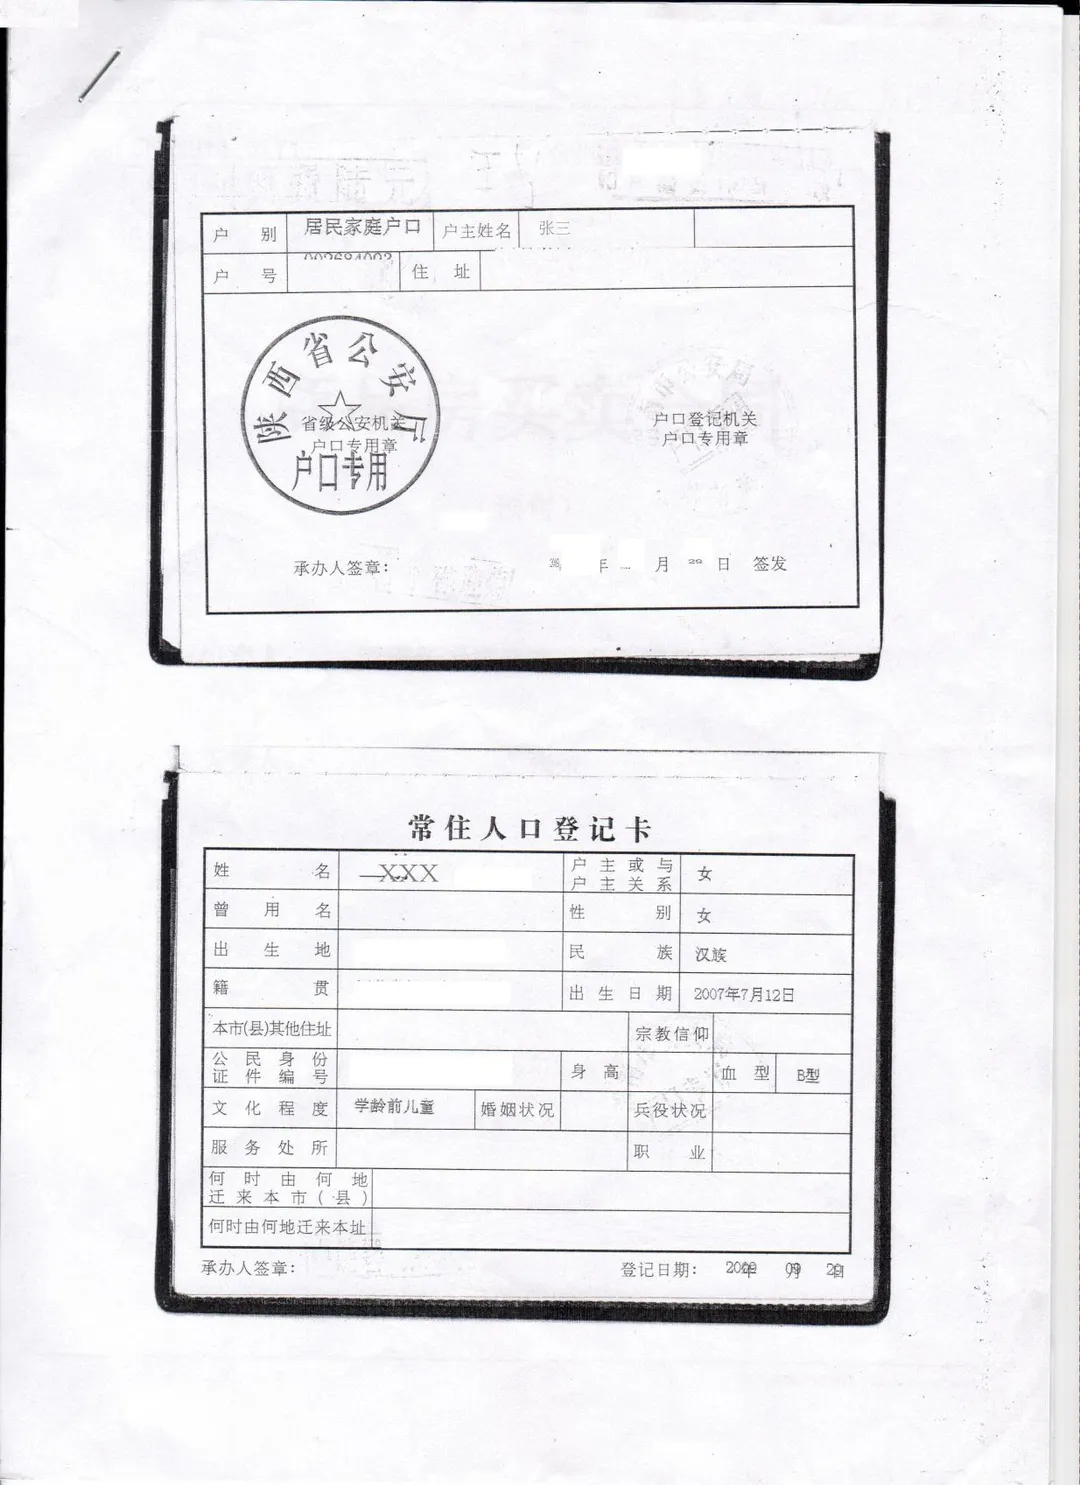 户 别 居民家庭户口 户主姓名 张三
户 号 住 址
陕西省公安厅
省级公安机关
户口专用章
户口专用
户口登记机关
户口专用章
承办人签章： 年 月 日 签发
常住人口登记卡
姓 名 XXX 户主或与户主关系 女
曾用名 性 别 女
出生地 民 族 汉族
籍 贯 出生日期 2007年7月12日
本市(县)其他住址 宗教信仰
公民身份证件编号 身 高 血 型 B型
文化程度 学龄前儿童 婚姻状况 兵役状况
服务处所 职 业
何时由何地迁来本市(县)
何时由何地迁来本址
承办人签章： 登记日期： 年 09月 日